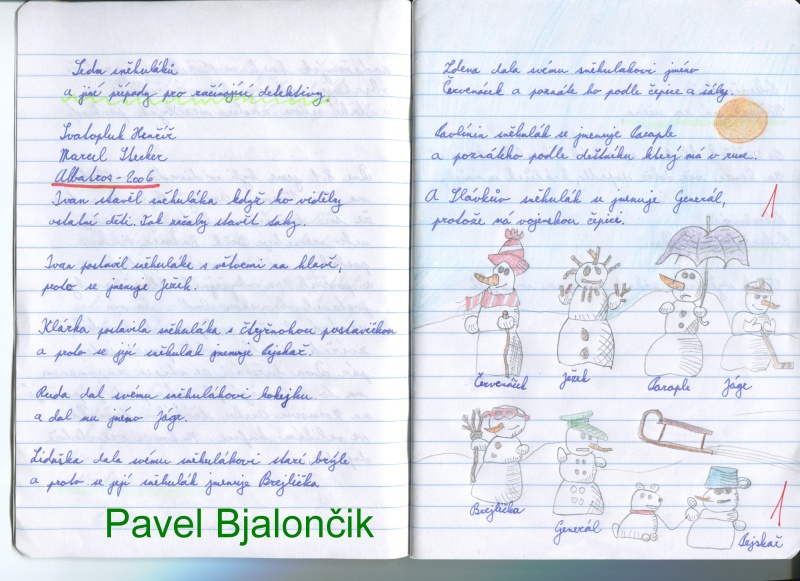 Šeda sněhuláků
a jiné případy pro začínající detektivy.
Svatopluk Hrnčíř
Marcel Stecker
Albatros - 2006
Ivan stavěl sněhuláka když ho viděly
ostatní děti. Tak začaly stavit taky.
Ivan postavil sněhuláka s větvemi na hlavě,
proto se jmenuje Ježek.
Klárka postavila sněhuláka s čtyřnohou postavičkou
a proto se její sněhulák jmenuje Pejskař.
Ruda dal svému sněhulákovi hokejku
a dal mu jméno Jágr.
Liduška dala svému sněhulákovi staré brýle
a proto se její sněhulák jmenuje Brejlička
Pavel Bjalončik
Zdena dala svému sněhulakovi jméno
Červenáček a poznáte ho podle čepice a šály.
Pavlínin sněhulák se jmenuje Paraple
a poznáteho podle deštníku který má v ruce.
A Slávkův sněhulák se jmenuje Generál,
protože má vojenskou čepici.
1
Červenáček Ježek Paraple Jágr
Brejlička
Generál
Pejskař
1